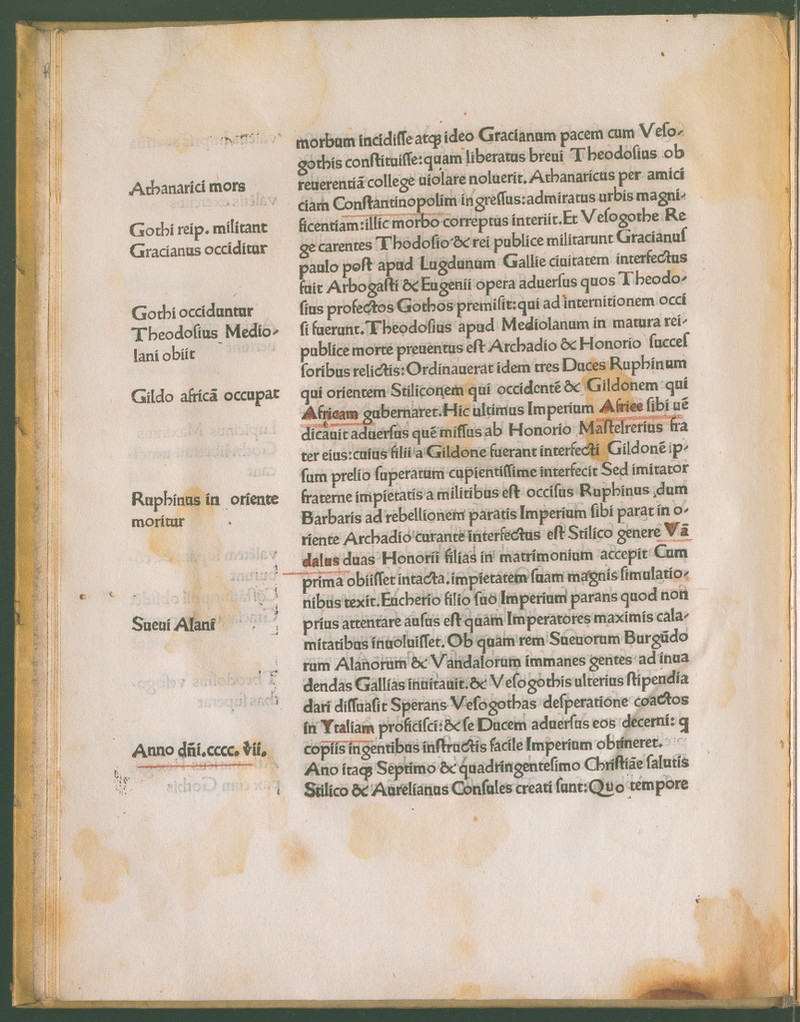 morbum incidiſſe atqꝫ ideo Gracianum pacem cum Veſo⸗
gothis conſtituiſſe:quam liberatus breui Theodoſius ob
Athanarici mors
reuerentiã college uiolare noluerit. Athanaricus per amici
ciam Conſtantinopolim ingreſſus:admiratus urbis magni⸗
Gothi reip. militant
ficentiam:illic morbo correptus interiit.Et Veſogothe Re
Gracianus occiditur
ge carentes Thodoſio & rei publice militarunt Gracianuſ
paulo poſt apud Lugdunum Gallie ciuitatem interfectus
fuit Arbogaſti & Eugenii opera aduerſus quos Theodo⸗
Gothi occiduntur
ſius profectos Gothos premiſit:qui ad internitionem occi
Theodoſius Medio⸗
ſi fuerunt.Theodoſius apud Mediolanum in matura rei⸗
lani obiit
publice morte preuentus eſt Archadio & Honorio ſucceſ
ſoribus relictis:Ordinauerat idem tres Duces Ruphinum
Gildo africã occupat
qui orientem Stiliconem qui occidentẽ & Gildonem qui
Africam gubernaret.Hic ultimus Imperium Africe ſibi uẽ
dicauit aduerſus quẽ miſſus ab Honorio Maſtelrerius fra
ter eius:cuius filii a Gildone fuerant interfecti Gildonẽ ip⸗
ſum prelio ſuperatum cupientiſſime interfecit Sed imitator
Ruphinus in oriente
fraterne impietatis a militibus eſt occiſus Ruphinus dum
moritur
Barbaris ad rebellionem paratis Imperium ſibi parat in o⸗
riente Archadio curante interfectus eſt Stilico genere Vã
dalus duas Honorii filias in matrimonium accepit Cum
prima obiiſſet intacta.impietatem ſuam magnis ſimulatio⸗
nibus texit.Eucherio filio ſuo Imperium parans quod non
Sueui Alani
prius attentare auſus eſt quam Imperatores maximis cala⸗
mitatibus inuoluiſſet. Ob quam rem Sueuorum Burgũdo
rum Alanorum & Vandalorum immanes gentes ad inua
dendas Gallias inuitauit.& Veſogothis ulterius ſtipendia
dari diſſuaſit Sperans Veſogothas deſperatione coactos
in Ytaliam proficiſci:& ſe Ducem aduerſus eos decerni: q
Anno dñi.cccc. vii.
copiis ingentibus inſtructis facile Imperium obtineret.
Ano itaqꝫ Septimo & quadringenteſimo Chriſtiãe ſalutis
Stilico & Aurelianus Conſules creati ſunt:Quo tempore